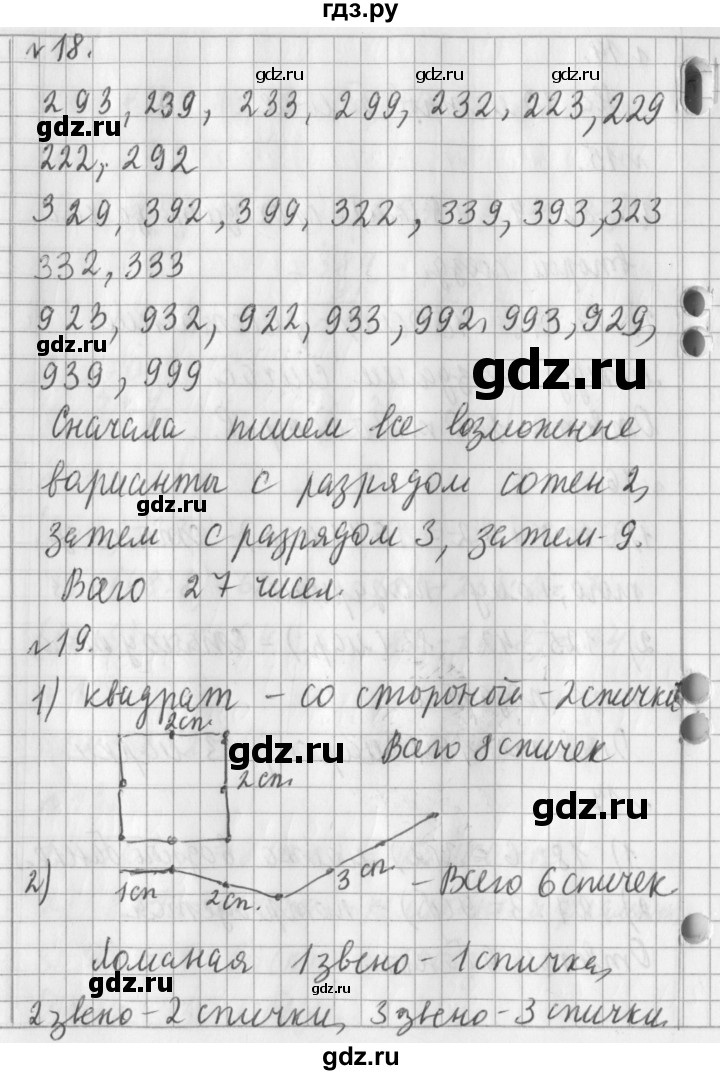 гдз.ру
№18.
gdz.ru gdz.ru gdz.ru
293, 239, 233, 299, 232, 223, 229
gdz.ru
222, 292
329, 392, 399, 322, 339, 393, 323
332, 333
923, 932, 922, 933, 992, 993, 929,
gdz.ru
gdz.ru
939, 999
Сначала пишем все возможные
варианты с разрядом сотен 2,
gdz.ru
затем с разрядом 3, затем - 9.
Всего 27 чисел.
№19.
1) квадрат - со стороной - 2 спички
2сп.
gdz.ru
Всего 8 спичек
2сп.
gdz.ru
2) 1сп 2сп. 3 сп. - Всего 6 спичек
Ломаная 1 звено - 1 спичка,
gdz.ru gdz.ru
2 звено - 2 спички, 3 звено - 3 спички.
gdz.ru